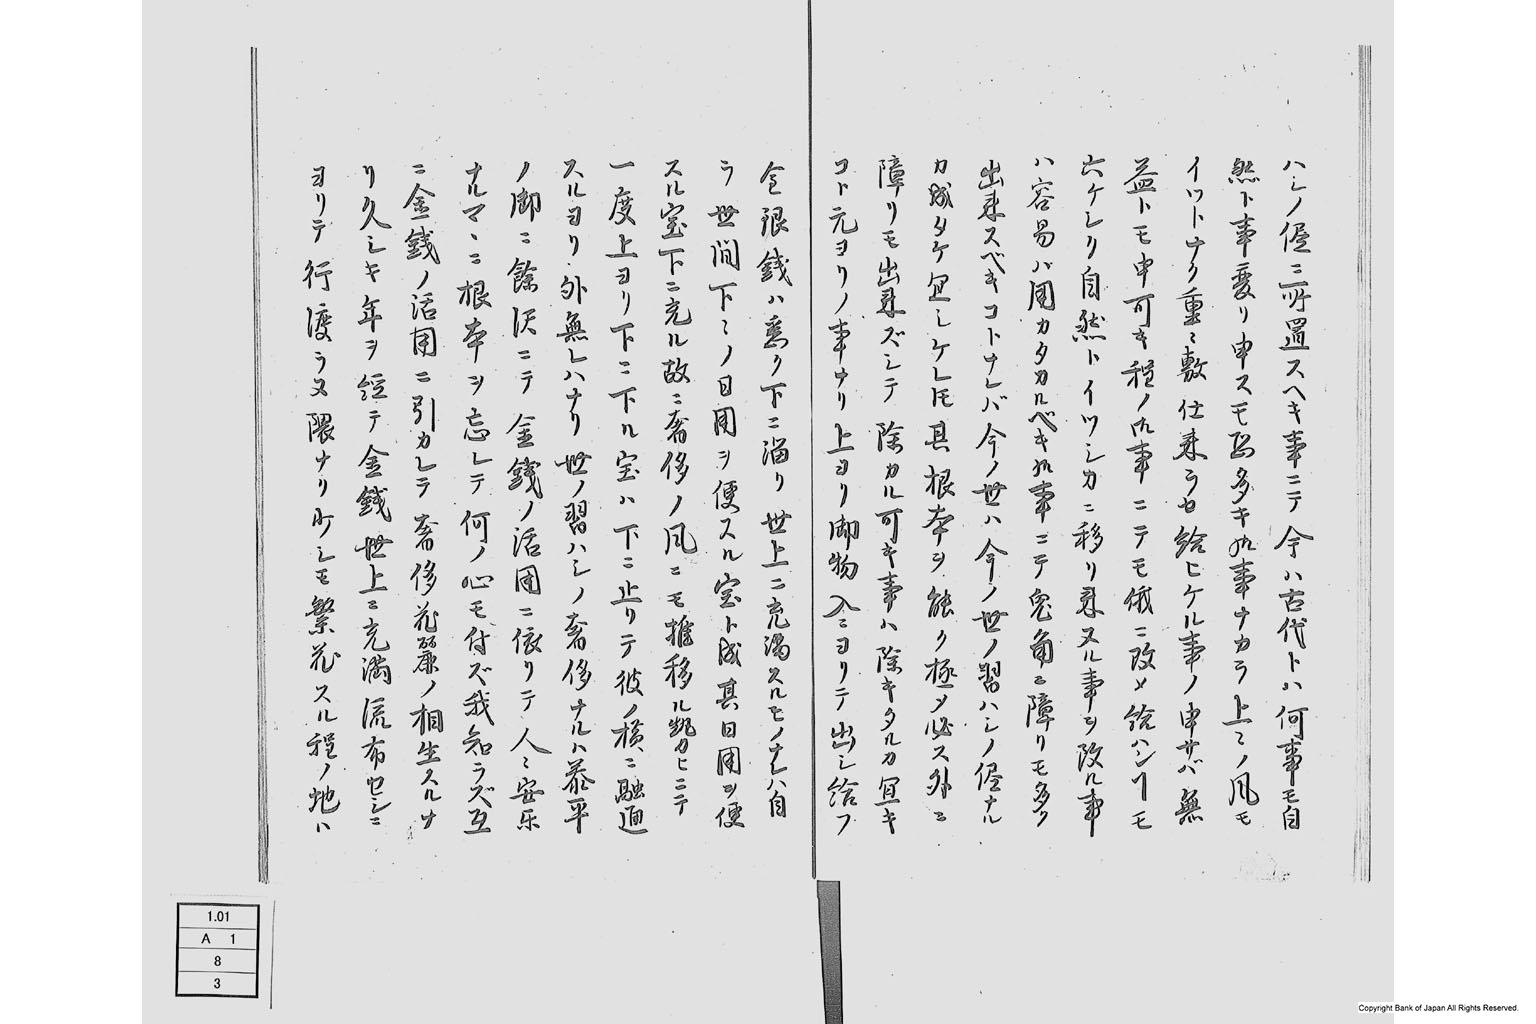 ハシノ侭ニ所置スヘキ事ニテ今ハ古代トハ何事モ自
然ト事変リ申スモ恐多キ御事ナカラ上ミノ風モ
イツトナク重々敷仕来ラセ給ヒケル事ノ申サバ無
益トモ申可キ程ノ御事ニテモ俄ニ改メ給ハンヿモ
六ケシク自然トイツシカニ移リ来ヌル事ヲ改ル事
ハ容易ハ用カタカルベキ御事ニテ兎角ニ障リモ多ク
出来スベキコトナレバ今ノ世ハ今ノ世ノ習ハシノ侭ナル
カ成タケ宜シケレ𪜈其根本ヲ能ク極メ必ス外ニ
障リモ出来ズシテ除カル可キ事ハ除キタルカ宜キ
コト元ヨリノ事ナリ上ヨリ御物入ニヨリテ出シ給フ
金銀銭ハ悉ク下ニ溜リ世上ニ充満スルモノナレハ自
ラ世間下々ノ日用ヲ便スル宝ト成其日用ヲ便
スル宝下ニ充ル故ニ奢侈ノ風ニモ推移ル勢ヒニテ
一度上ヨリ下ニ下ル宝ハ下ニ止リテ彼ノ横ニ融通
スルヨリ外無レハナリ世ノ習ハシノ奢侈ナルハ泰平
ノ御ニ餘沢ニテ金銭ノ活用ニ依リテ人々安楽
ナルマヽニ根本ヲ忘レテ何ノ心モ付ズ我知ラズ互
ニ金銭ノ活用ニ引カレテ奢侈花麗ノ相生スルナ
リ久シキ年ヲ経テ金銭世上ニ充満流布セシニ
ヨリテ行渡ラヌ隈ナリ少シモ繁花スル程ノ地ハ
1.01
A 1
8
3
Copyright Bank of Japan All Rights Reserved.